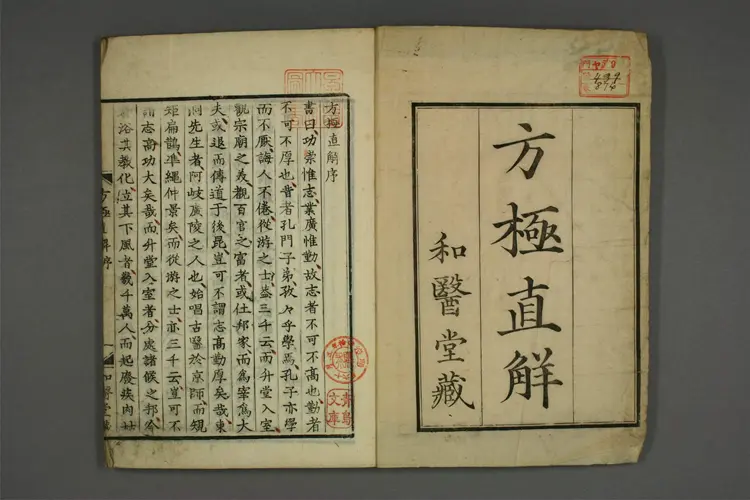 方極直解
和醫堂藏
方極直解序
書曰功崇惟志業廣惟勤故志者不可不高也勤者
不可不厚也昔者孔門子弟孜々乎學焉孔子亦學
而不厭誨人不倦從游之士蓋三千云而升堂入室
觀宗廟之美觀百官之富者或仕邦家而爲宰爲大
夫或退而傳道于後昆豈可不謂志高勤厚矣哉東
洞先生者阿岐廣陵之人也始唱古醫於京師而規
矩扁鵲準繩仲景矣而從游之士亦三千云豈可不
謂志高功大矣哉而升堂入室者分處諸侯之邦今
浴其教化立其下風者幾千萬人而起廢疾肉
方極直解序
一
和醫堂藏
青烏
文庫